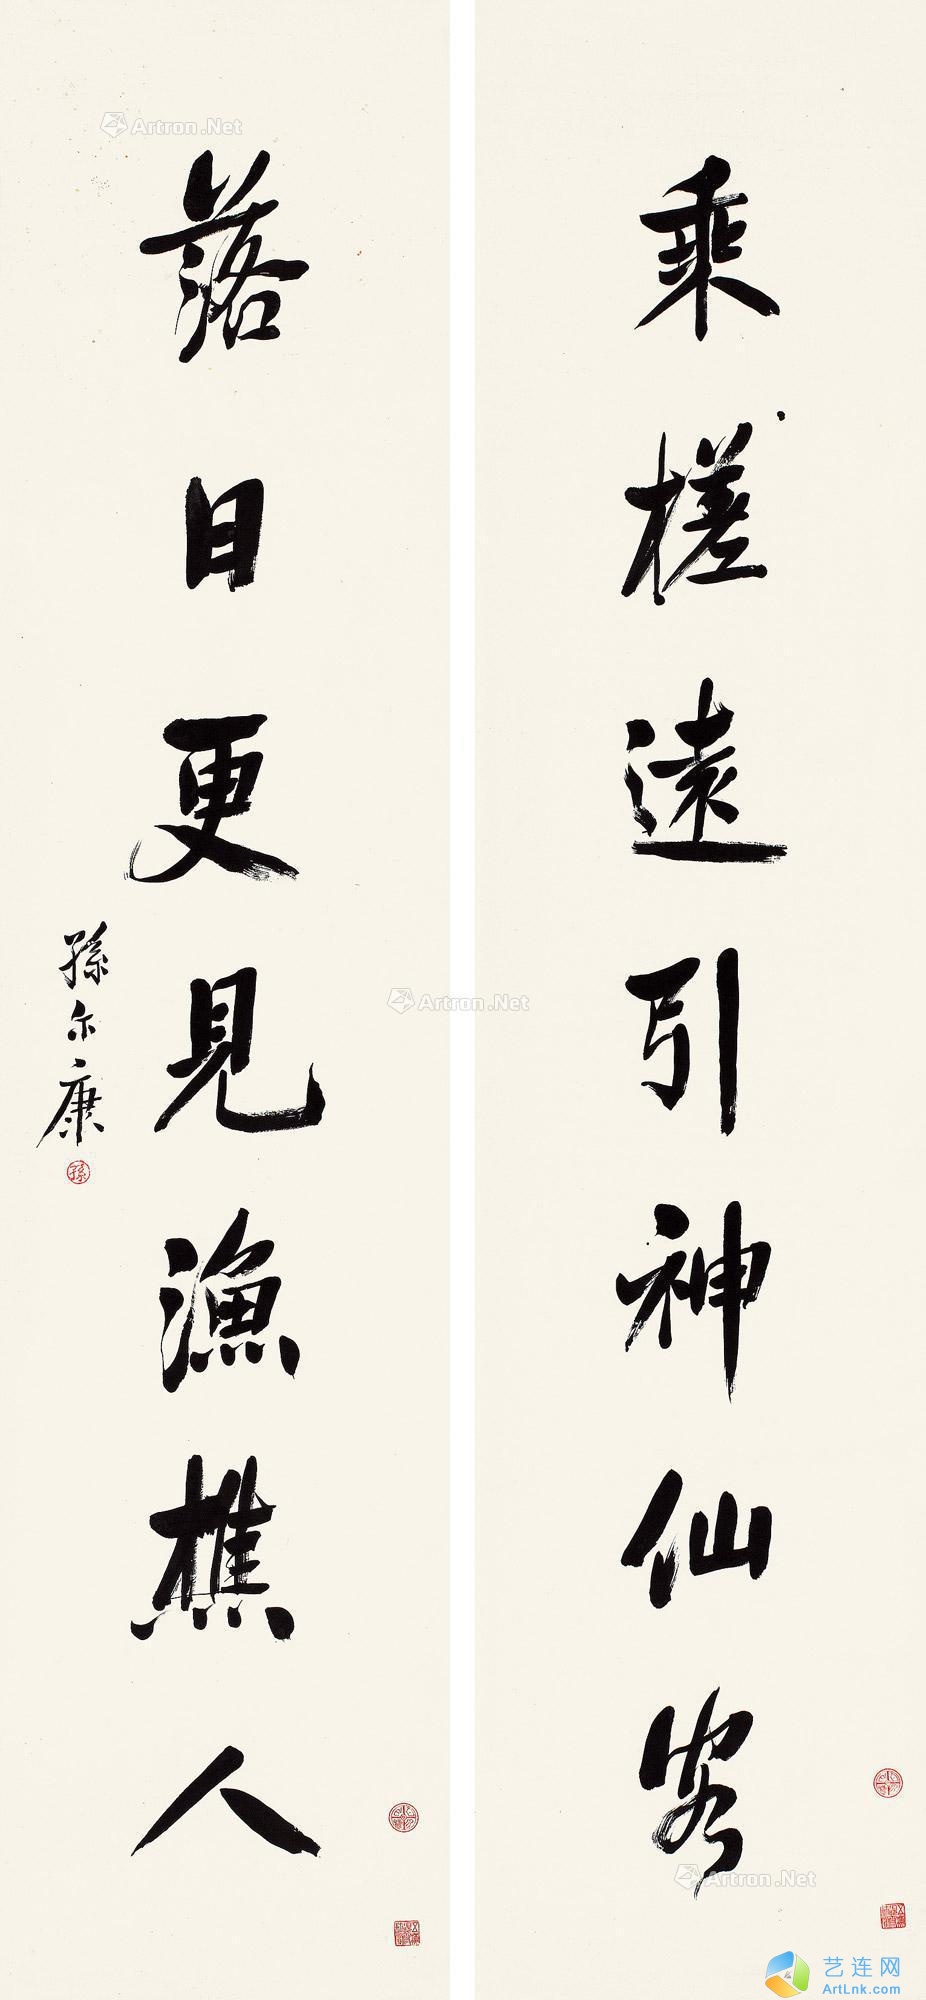 乘槎遠引神仙客
落日更見漁樵人
孫尔康
孫
Artron.Net
Artron.Net
Artron.Net
艺连网
ArtLnk.com